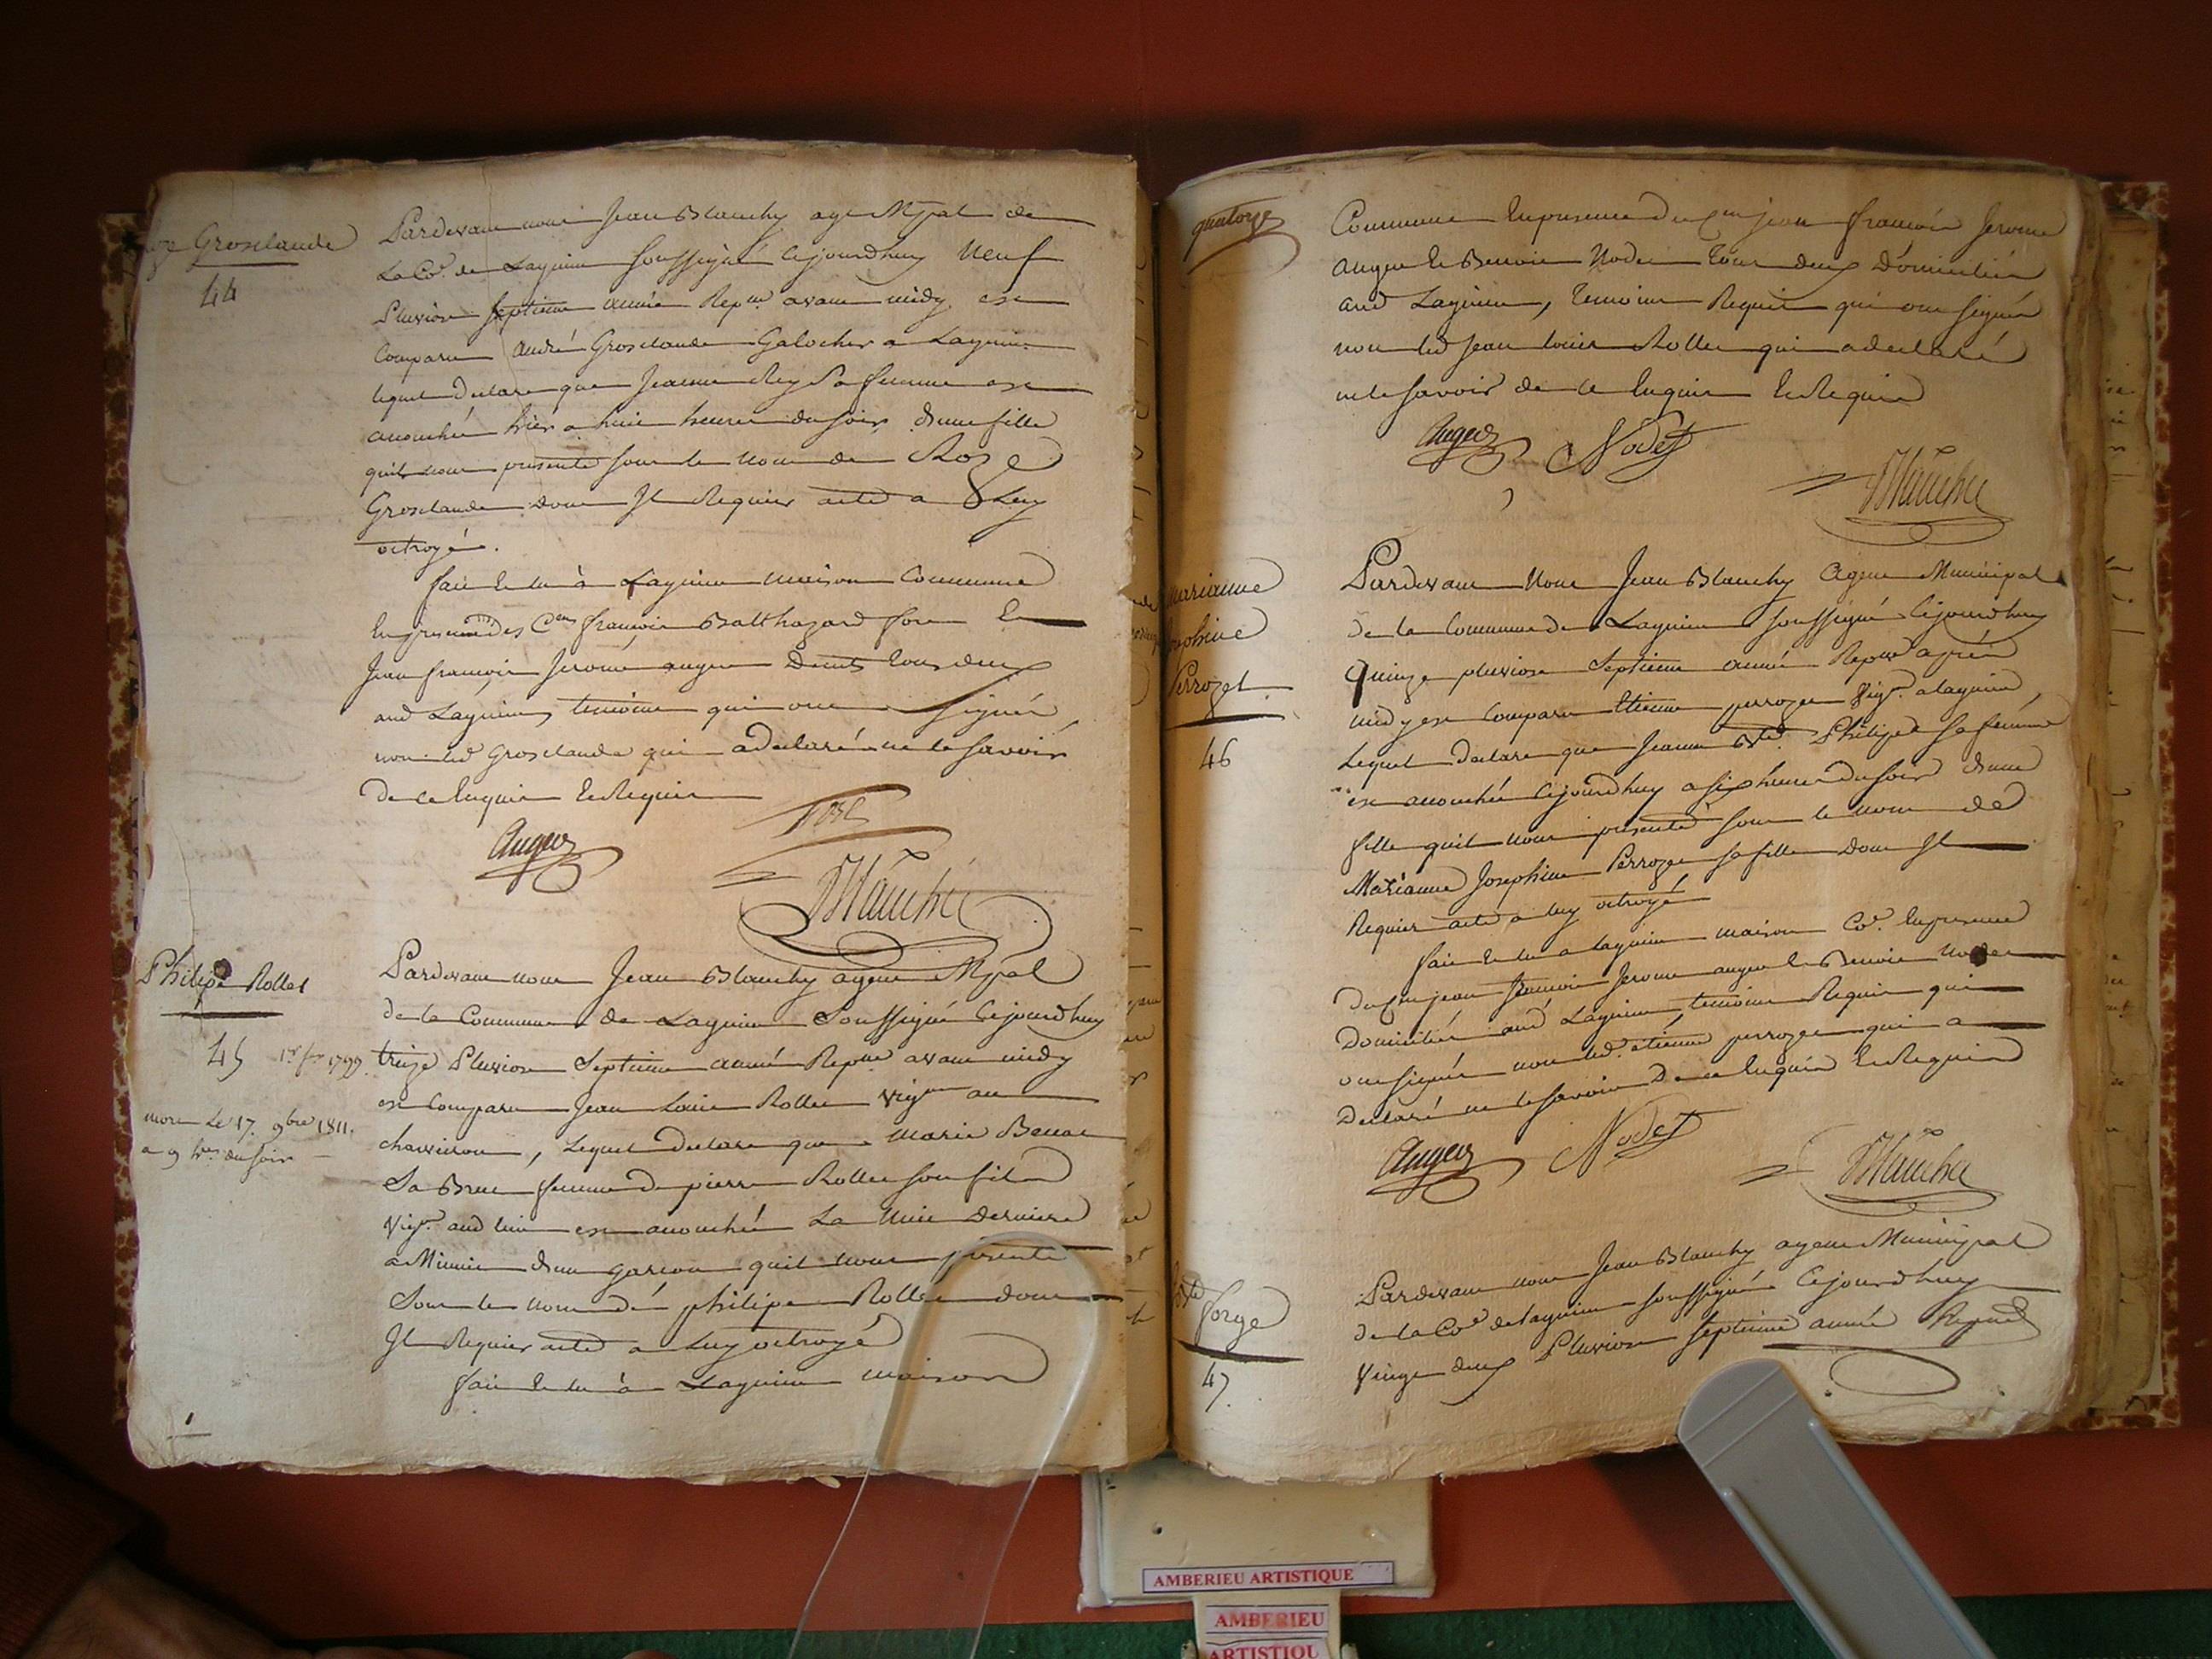 Groslaude
44
Pardevant nous Jean Blanchy agt Mpal de
La Coe de Lagnieu soussigné Cejourdhuy Neuf
Pluviose septieme année Repne avant midy est
Comparu André Groslaude Galocher a Lagnieu
lequel Declare que Jeanne Rey Sa femme est
accouchée hier a huit heures du soir d'une fille
quil nous presente sous le nom de Roze
Groslaude dont Il Requier acte a Luy
octroyé.
fait et lu à Lagnieu maison Commune
En presence des Cens françois Balthazard fort Et
Jean françois Jerome auger tous deux
aud Lagnieu, temoins qui ont signés
non led Groslaude qui a declaré ne le savoir
de ce Enquis Et Requis
Auger
fort
Blanchy
Philipe Rollet
45
1er fer 1799.
mort Le 17 9bre 1811.
a 9 hres du soir
Pardevant nous Jean Blanchy agent Mpal
de la Commune de Lagnieu Soussigné Cejourdhuy
treize Pluviose Septieme année Repne avant midy
est Comparu Jean Louis Rollet vigron au
, Lequel Declare que Marie
Sa Bru femme de pierre Rollet son fils
vigr aud lieu est accouchée La Nuit Derniere
a Minuit d'un garcon quil nous presente
Sous le nom de philipe Rollet dont
Il Requier acte a Luy octroyé
fait et lu à Lagnieu maison
quatorze
Commune En presence du Cen jean françois Jerome
auger Et Benoit Nodet Tous deux Domiciliés
aud Lagnieu, Temoins Requis qui ont signés
non led Jean louis Rollet qui a declaré
ne le savoir de ce Enquis Et Requis
Auger
Nodet
Blanchy
Marianne
Josphine
Perrozet
46
Pardevant Nous Jean Blanchy Agent Municipal
de la Commune de Lagnieu soussigné Cejourdhuy
Quinze pluviose Septieme année Repne après
midy est Comparu Etienne perrozet Vigr a lagnieu,
Lequel declare que Jeanne Bte Philipe sa femme
est accouchée Cejourdhuy a six heures du soir d'une
fille quil nous presente sous le nom de
Marianne Josephine Perrozet sa fille Dont Il
Requier acte a luy octroyé
fait et lu a lagnieu maison Coe En presence
du Cen jean françois Jerome auger Et Benoit Nodet
Domiciliés aud Lagnieu, temoins Requis qui
ont signés non led. etienne perrozet qui a
Declaré ne le savoir De ce Enquis Et Requis
Auger
Nodet
Blanchy
forge
47.
Pardevant nous Jean Blanchy agent Municipal
de la Coe de lagnieu soussigné Cejourdhuy
Vingt deux Pluviose septieme année Repne
AMBERIEU ARTISTIQUE
AMBERIEU
ARTISTIQU